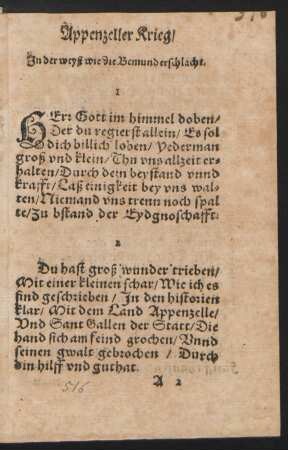 Appenzeller Krieg/
In der weyß wie die Bemunderschlacht.
1
HErr Gott im himmel doben/
Der du regierst allein/ Es sol
dich billich loben/ Yederman
groß vnd klein/ Thu vns allzeit er-
halten/ Durch dein beystand vnnd
krafft/ Laß einigkeit bey vns wal-
ten/ Niemand vns trenn noch spal
te/ Zu bstand der Eydgnoschafft.
2
Du hast groß wunder trieben/
Mit einer kleinen schar/ Wie ich es
find geschrieben/ In den historien
klar/ Mit dem Länd Appenzelle/
Vnd Sant Gallen der Statt/ Die
hand sich am feind grochen/ Vnnd
seinen gwalt gebrochen/ Durch
din hilff vnd guthat.
A 2
516